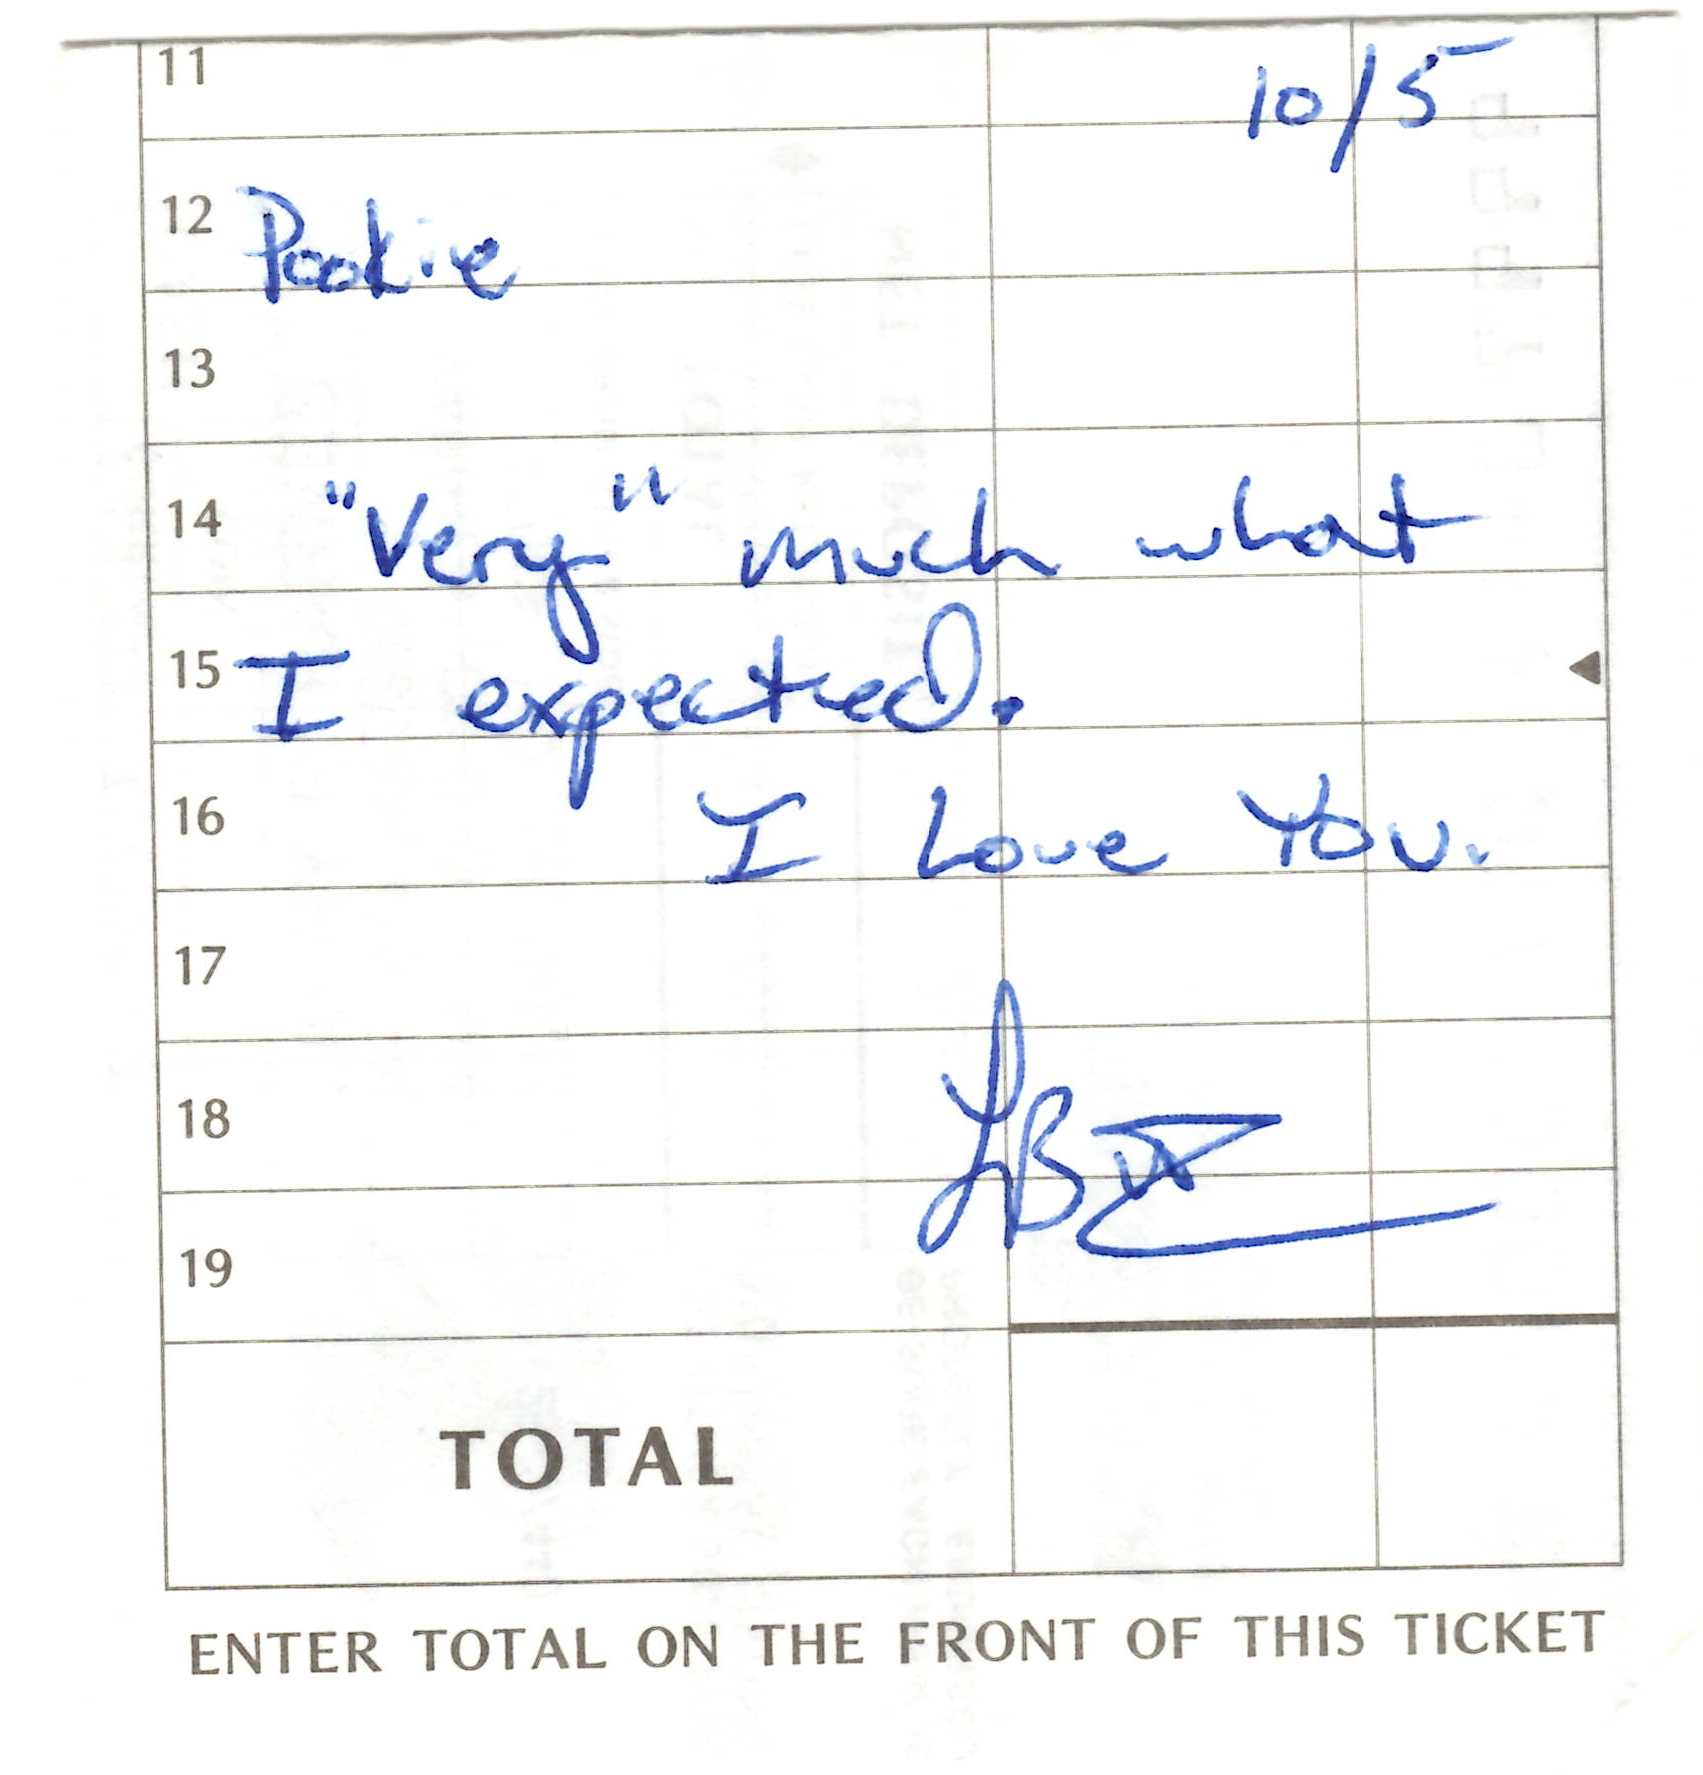 11 10/5
12 Pookie
13
14 "Very" much what
15 I expected.
16 I Love You.
17
18 LB IV
19
TOTAL
ENTER TOTAL ON THE FRONT OF THIS TICKET